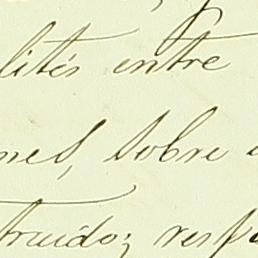 lités entre
nes, sobre
truido; resp